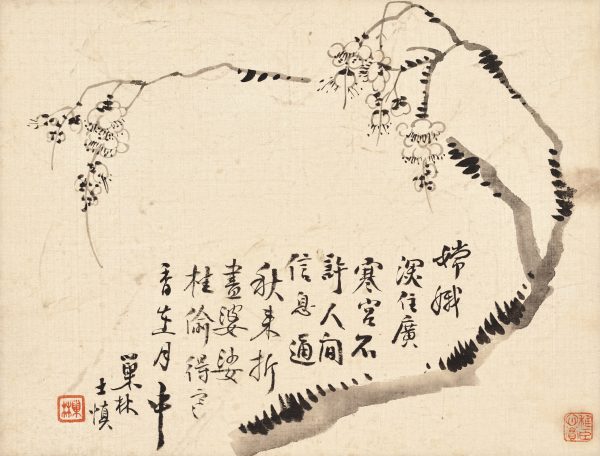 嫦娥
深住廣
寒宮不
許人間
信息通
秋來折
盡婆娑
桂偷得
香在月中
巢林
士慎
巢林